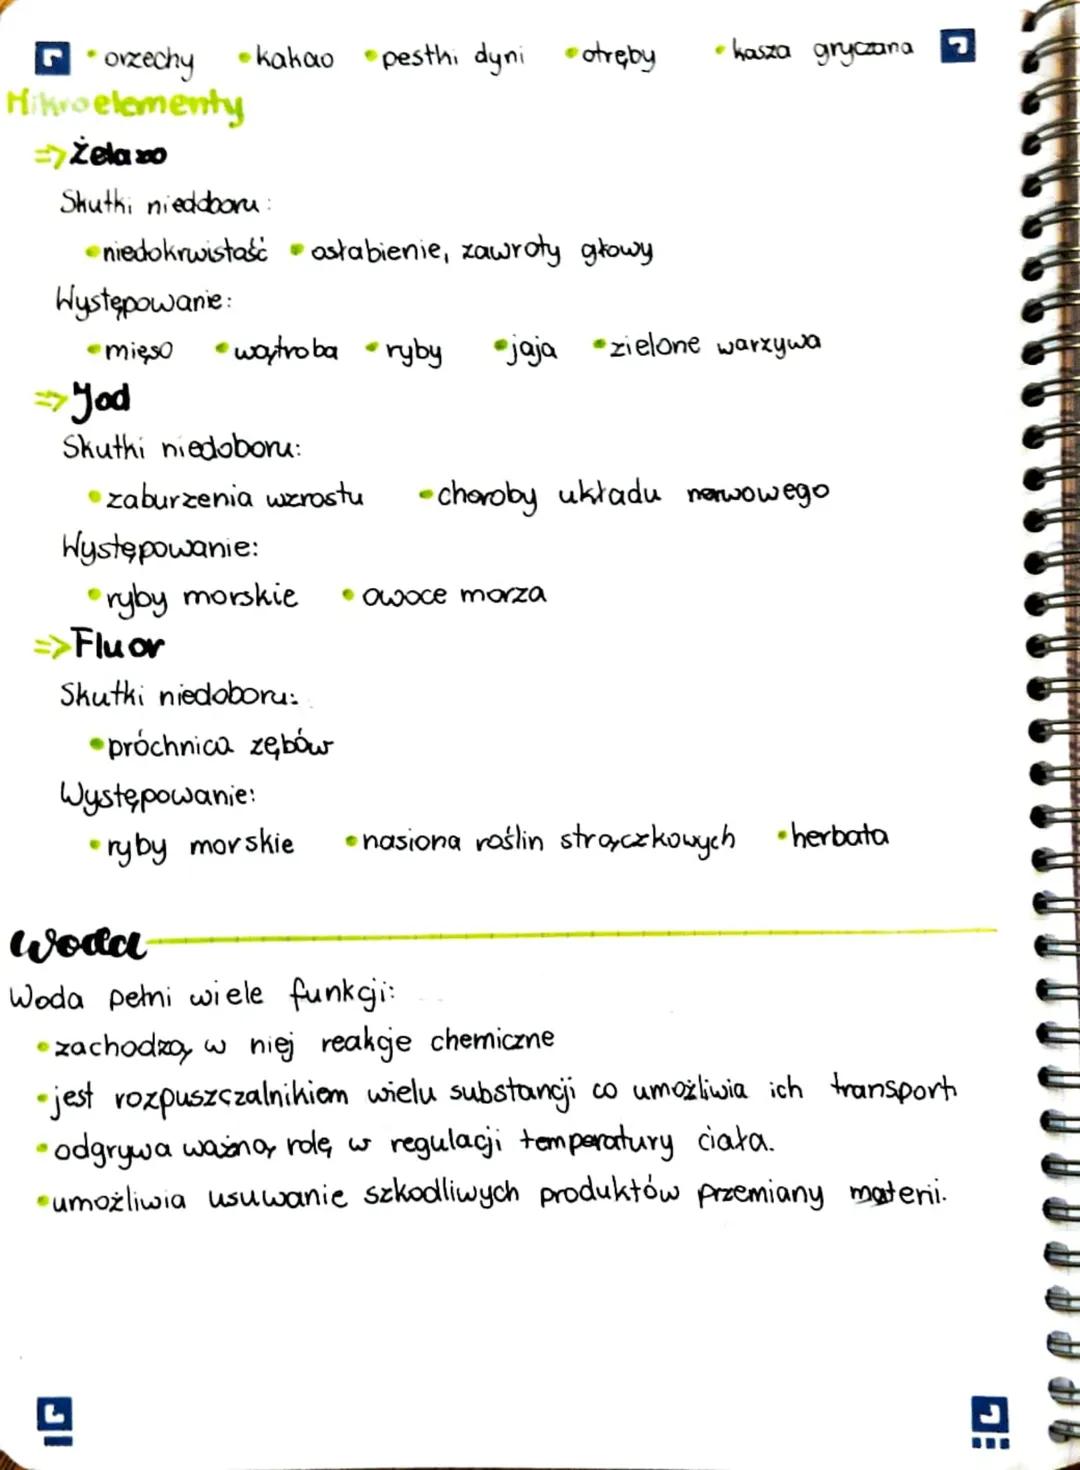 • orzechy • kakao • pestki dyni • otręby • kasza gryczana
Mikroelementy
=> Żelazo
Skutki nieddboru:
• niedokrwistość • osłabienie, zawroty głowy
Występowanie:
• mięso • wątroba • ryby • jaja • zielone warzywa
=> Jod
Skutki niedoboru:
• zaburzenia wzrostu • choroby układu nerwowego
Występowanie:
• ryby morskie • owoce morza
=> Fluor
Skutki niedoboru:
• próchnica zębów
Występowanie:
• ryby morskie • nasiona roślin strączkowych • herbata
Woda
Woda pełni wiele funkcji:
• zachodzą w niej reakcje chemiczne
• jest rozpuszczalnikiem wielu substancji co umożliwia ich transport
• odgrywa ważną rolę w regulacji temperatury ciała.
• umożliwia usuwanie szkodliwych produktów przemiany materii.